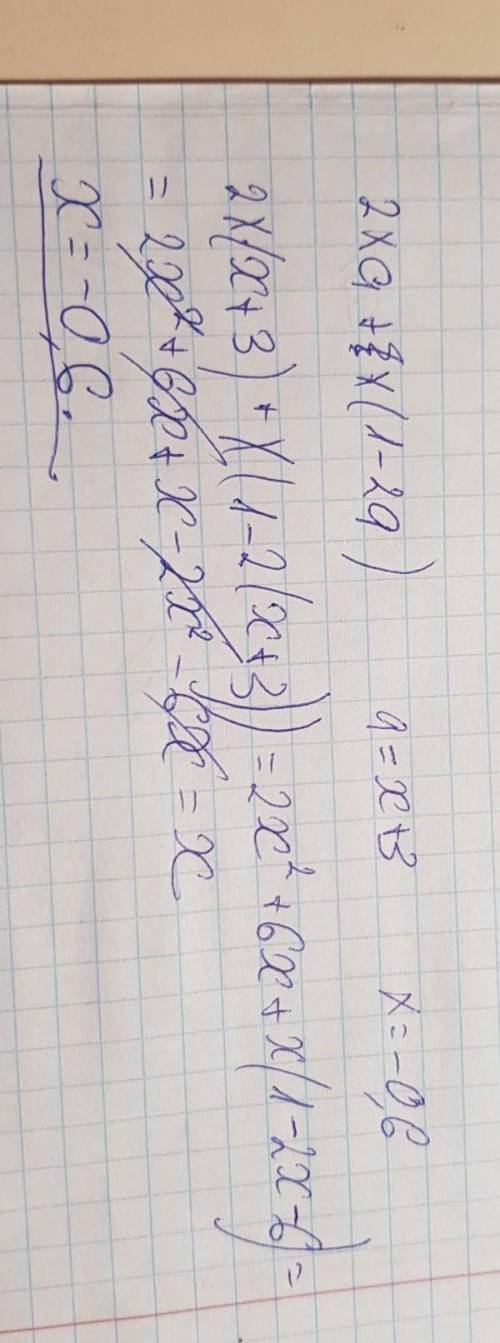 2xq + x(1-2q) q = x+3 x = -0,6
2x(x+3) + x(1-2(x+3)) = 2x² + 6x + x(1-2x-6) =
= 2x² + 6x + x - 2x² - 6x = x
x = -0,6.